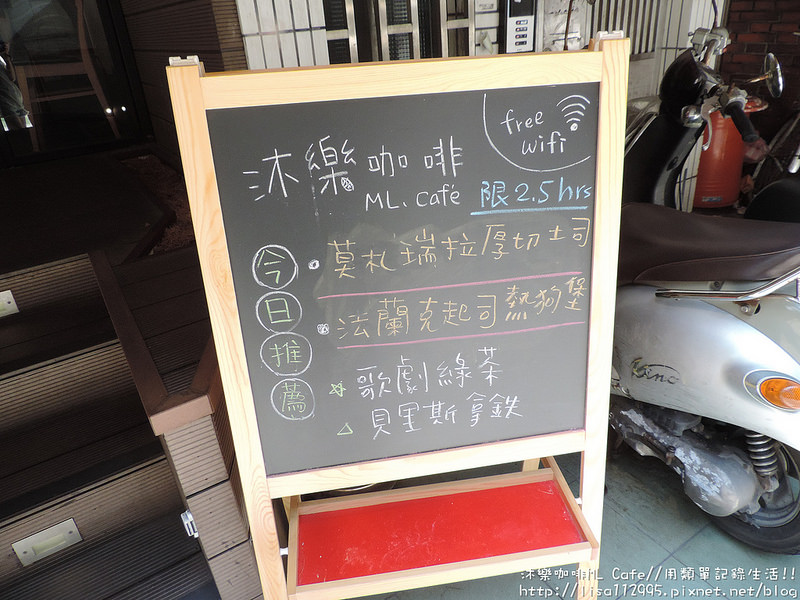 free
wifi
沐樂咖啡
ML. Café
限2.5hrs
今日推薦
莫札瑞拉厚切土司
法蘭克起司熱狗堡
歌劇綠茶
貝里斯拿鐵
沐樂咖啡ML Cafe//用類單記錄生活!!
http://lisa112995.pixnet.net/blog